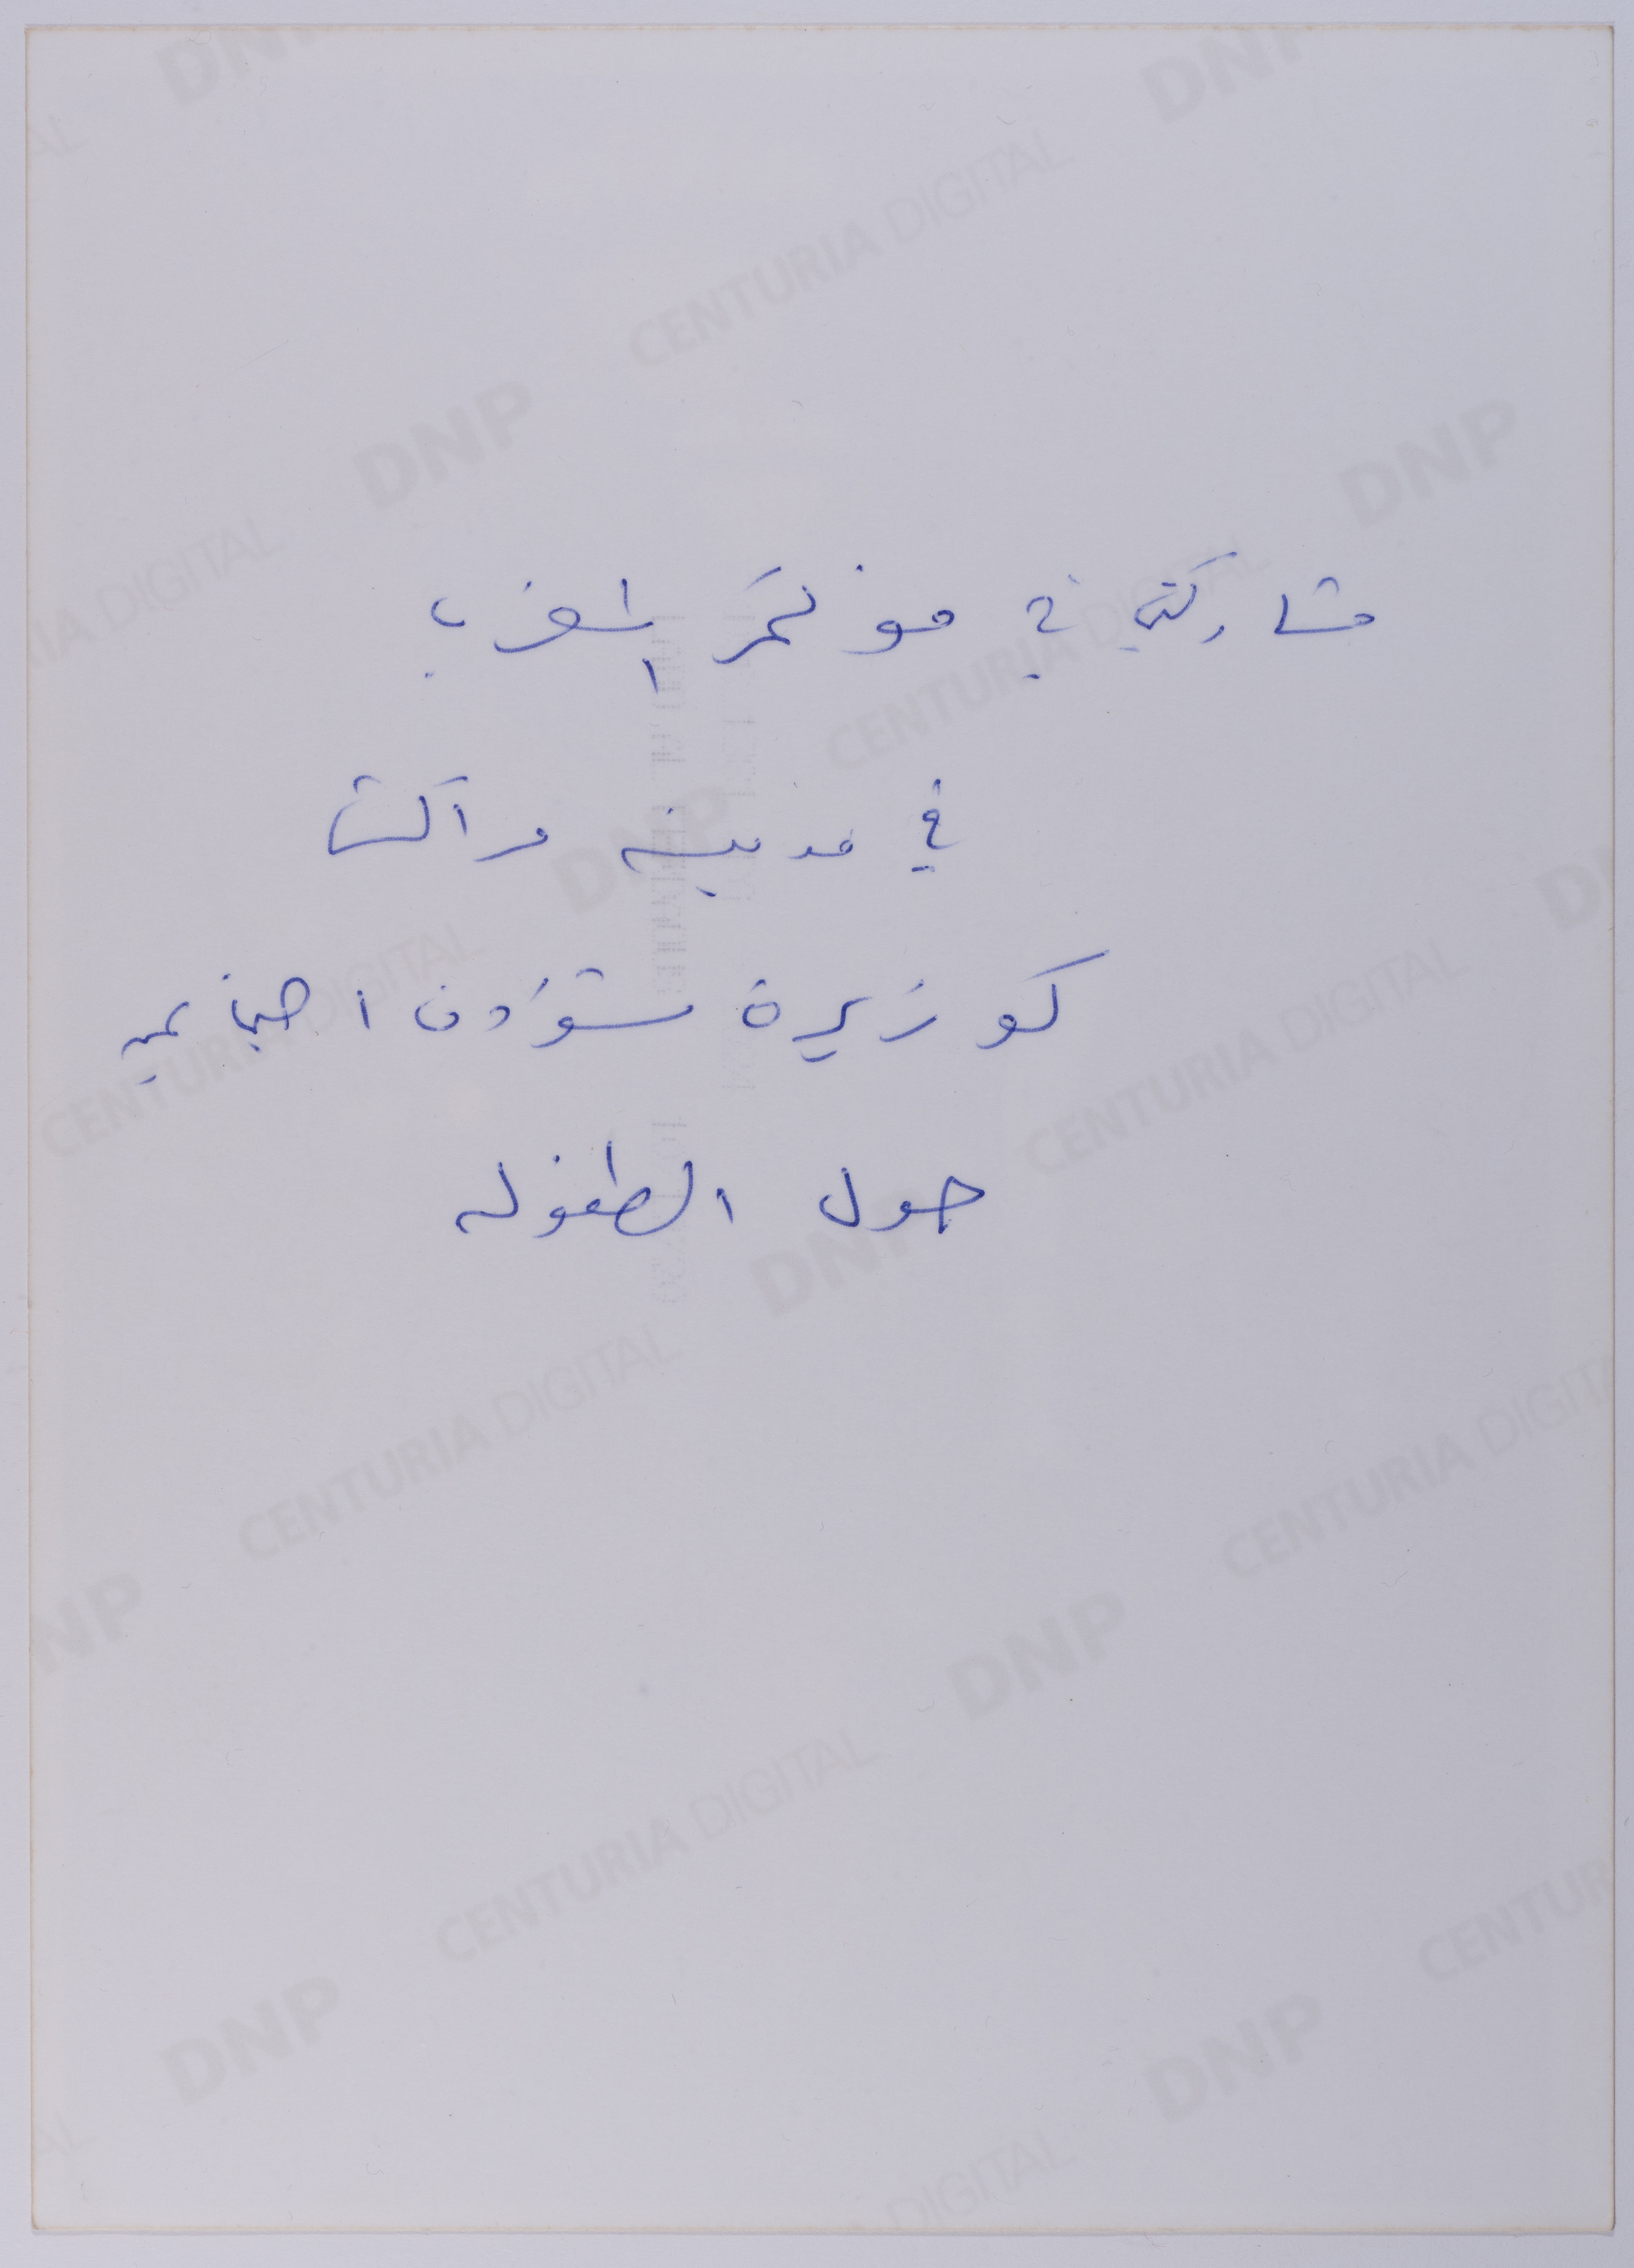 مشاركتي في مؤتمر المغرب
في مدينه مراكش
كوزيرة شؤون اجتماعيه
حول الطفوله
DNP CENTURIA DIGITAL